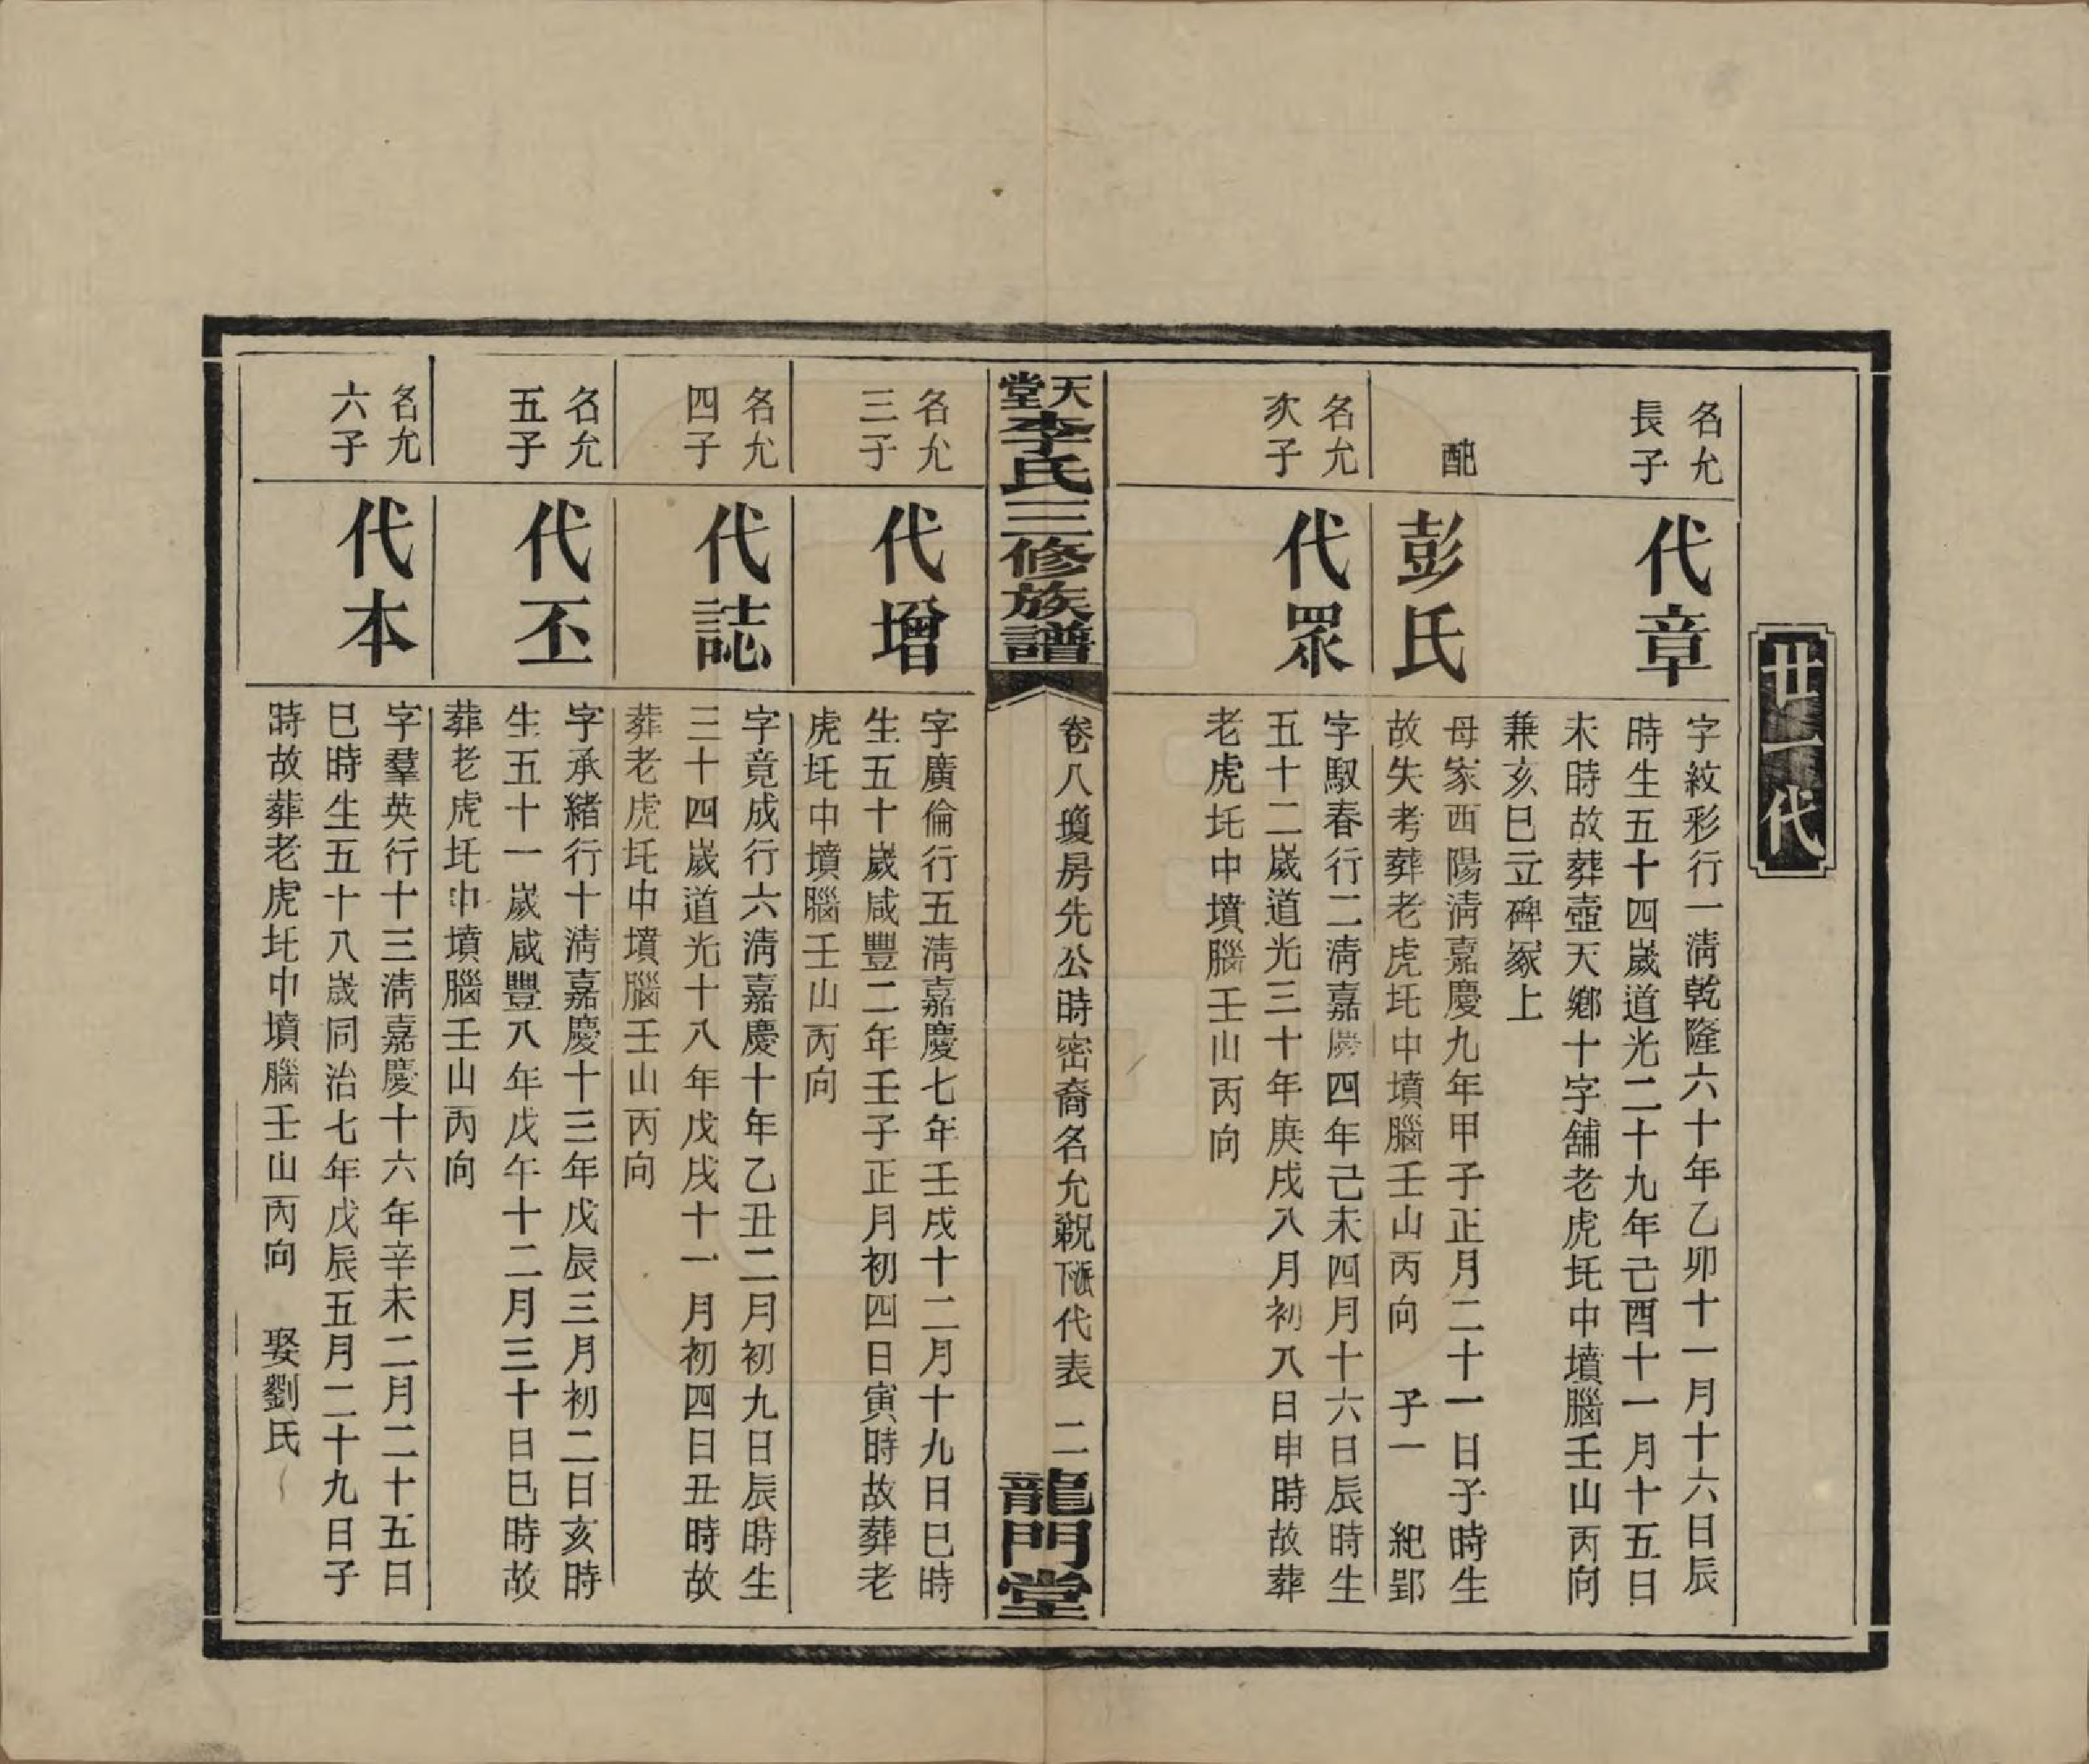 廿一代
名允
長子
代章
字紋彩行一淸乾隆六十年乙卯十一月十六日辰
時生五十四嵗道光二十九年己酉十一月十五日
未時故葬壺天鄉十字舖老虎坉中墳腦壬山丙向
兼亥巳立碑冢上
配
彭氏
母家西陽淸嘉慶九年甲子正月二十一日子時生
故失考葬老虎坉中墳腦壬山丙向 子一 紀郢
名允
次子
代眾
字馭春行二淸嘉慶四年己未四月十六日辰時生
五十二嵗道光三十年庚戌八月初八日申時故葬
老虎坉中墳腦壬山丙向
天堂李氏三修族譜
卷八瓊房先公時密裔名允親下派代表 二
龍門堂
名允
三子
代增
字廣倫行五淸嘉慶七年壬戌十二月十九日巳時
生五十嵗咸豐二年壬子正月初四日寅時故葬老
虎坉中墳腦壬山丙向
名允
四子
代誌
字竟成行六淸嘉慶十年乙丑二月初九日辰時生
三十四嵗道光十八年戊戌十一月初四日丑時故
葬老虎坉中墳腦壬山丙向
名允
五子
代丕
字承緒行十淸嘉慶十三年戊辰三月初二日亥時
生五十一嵗咸豐八年戊午十二月三十日巳時故
葬老虎坉中墳腦壬山丙向
名允
六子
代本
字羣英行十三淸嘉慶十六年辛未二月二十五日
巳時生五十八嵗同治七年戊辰五月二十九日子
時故葬老虎坉中墳腦壬山丙向 娶劉氏